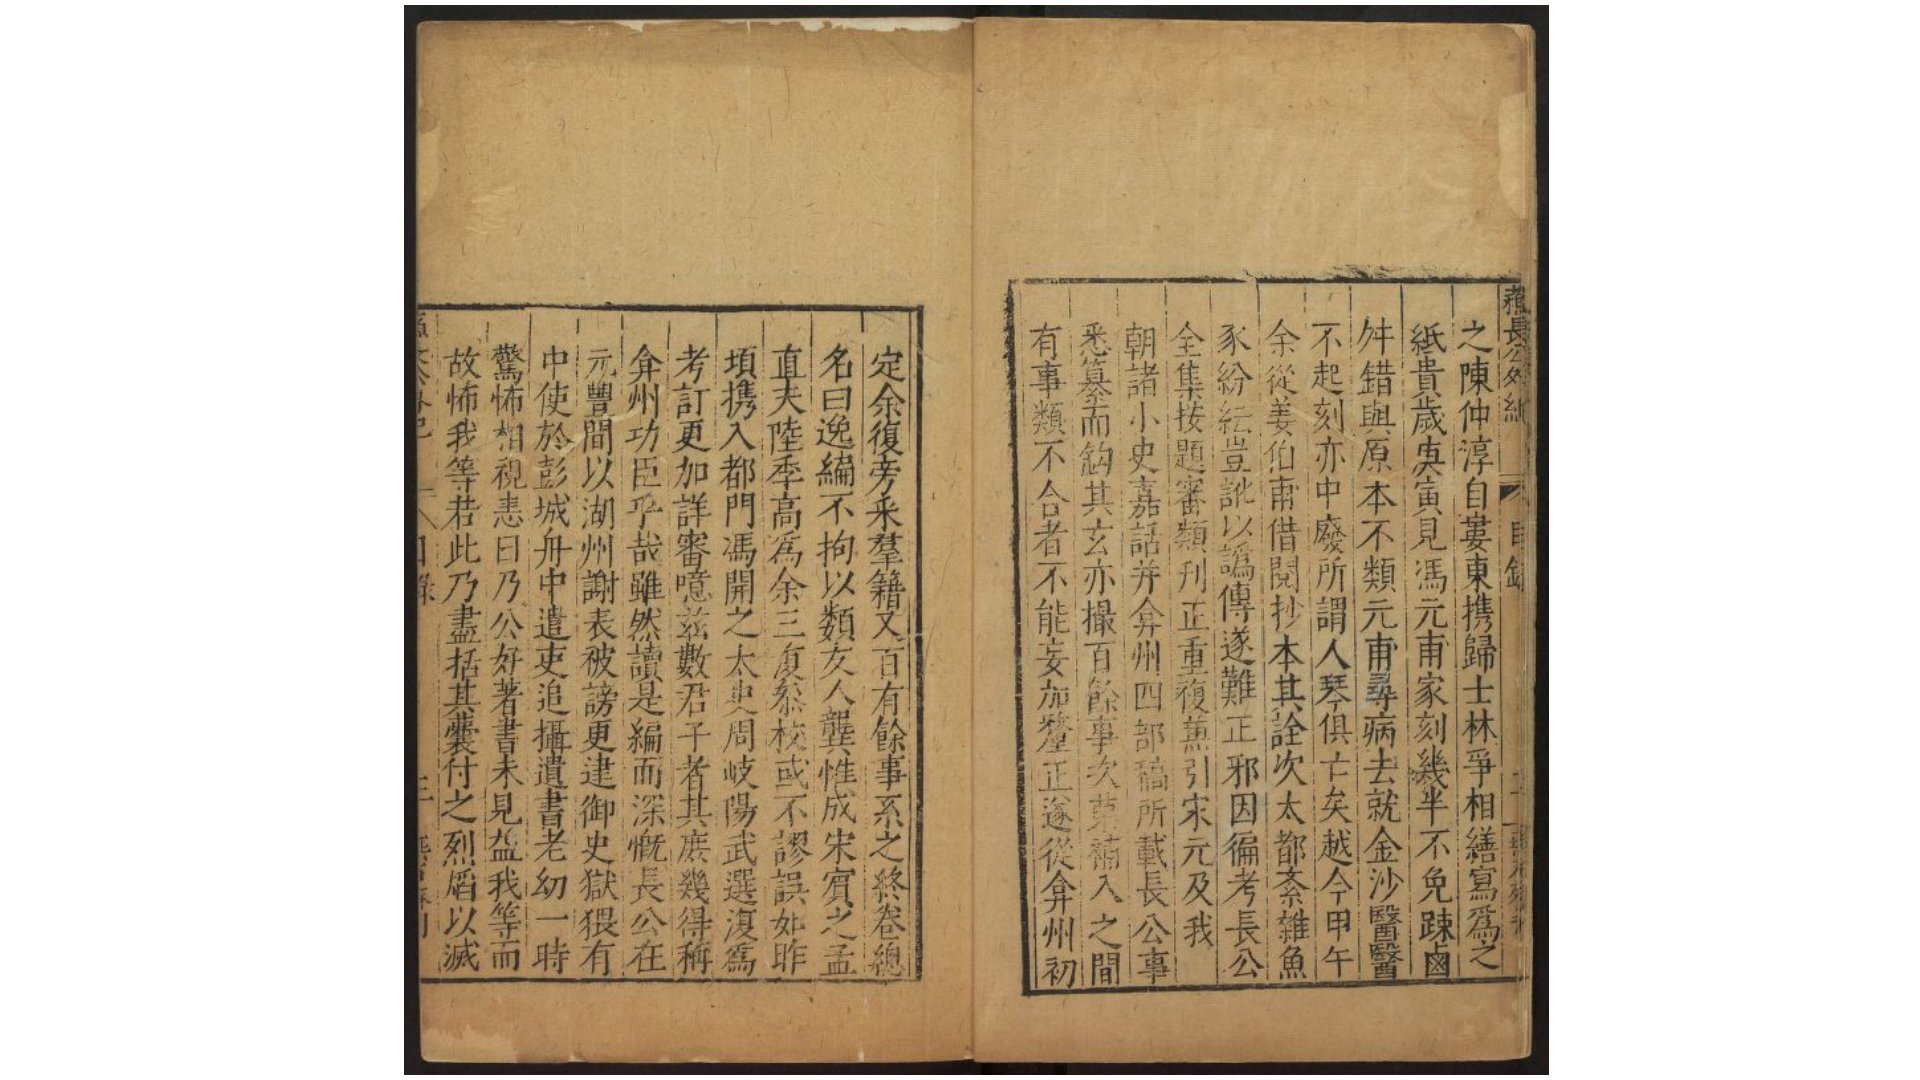 蘓長公外紀 目錄
之陳仲淳自婁東携歸士林爭相繕寫爲之
紙貴歲庚寅見馮元甫家刻幾半不免踈鹵
舛錯與原本不類元甫尋病去就金沙醫醫
不起刻亦中廢所謂人琴俱亡矣越今甲午
余從姜伯甫借閱抄本其詮次太都紊雜魚
豕紛紜豈訛以譌傳遂難正邪因徧考長公
全集按題審類刋正重複蒐引宋元及我
朝諸小史嘉話并弇州四部稿所載長公事
悉纂而鈎其玄亦撮百餘事次苐補入之間
有事類不合者不能妄加釐正遂從弇州初
定余復旁采羣籍又百有餘事系之終卷總
名曰逸編不拘以類友人龔惟成宋賓之孟
直夫陸季高爲余三復叅校或不謬誤如昨
項携入都門馮開之太史周岐陽武選復爲
考訂更加詳審噫兹數君子者其庶幾得稱
弇州功臣乎哉雖然讀是編而深慨長公在
元豐間以湖州謝表被謗更逮御史獄猥有
中使於彭城舟中遣吏追攝遺書老幼一時
驚怖相視恚曰乃公好著書未見益我等而
故怖我等若此乃盡括其囊付之烈熖以滅